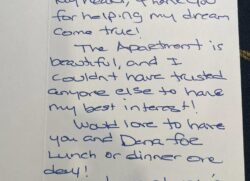 for helping my dream
come true!
The Apartment is
beautiful, and I
couldn't have trusted
anyone else to have
my best interest!
Would love to have
you and Dena foe
Lunch or dinner one
day!